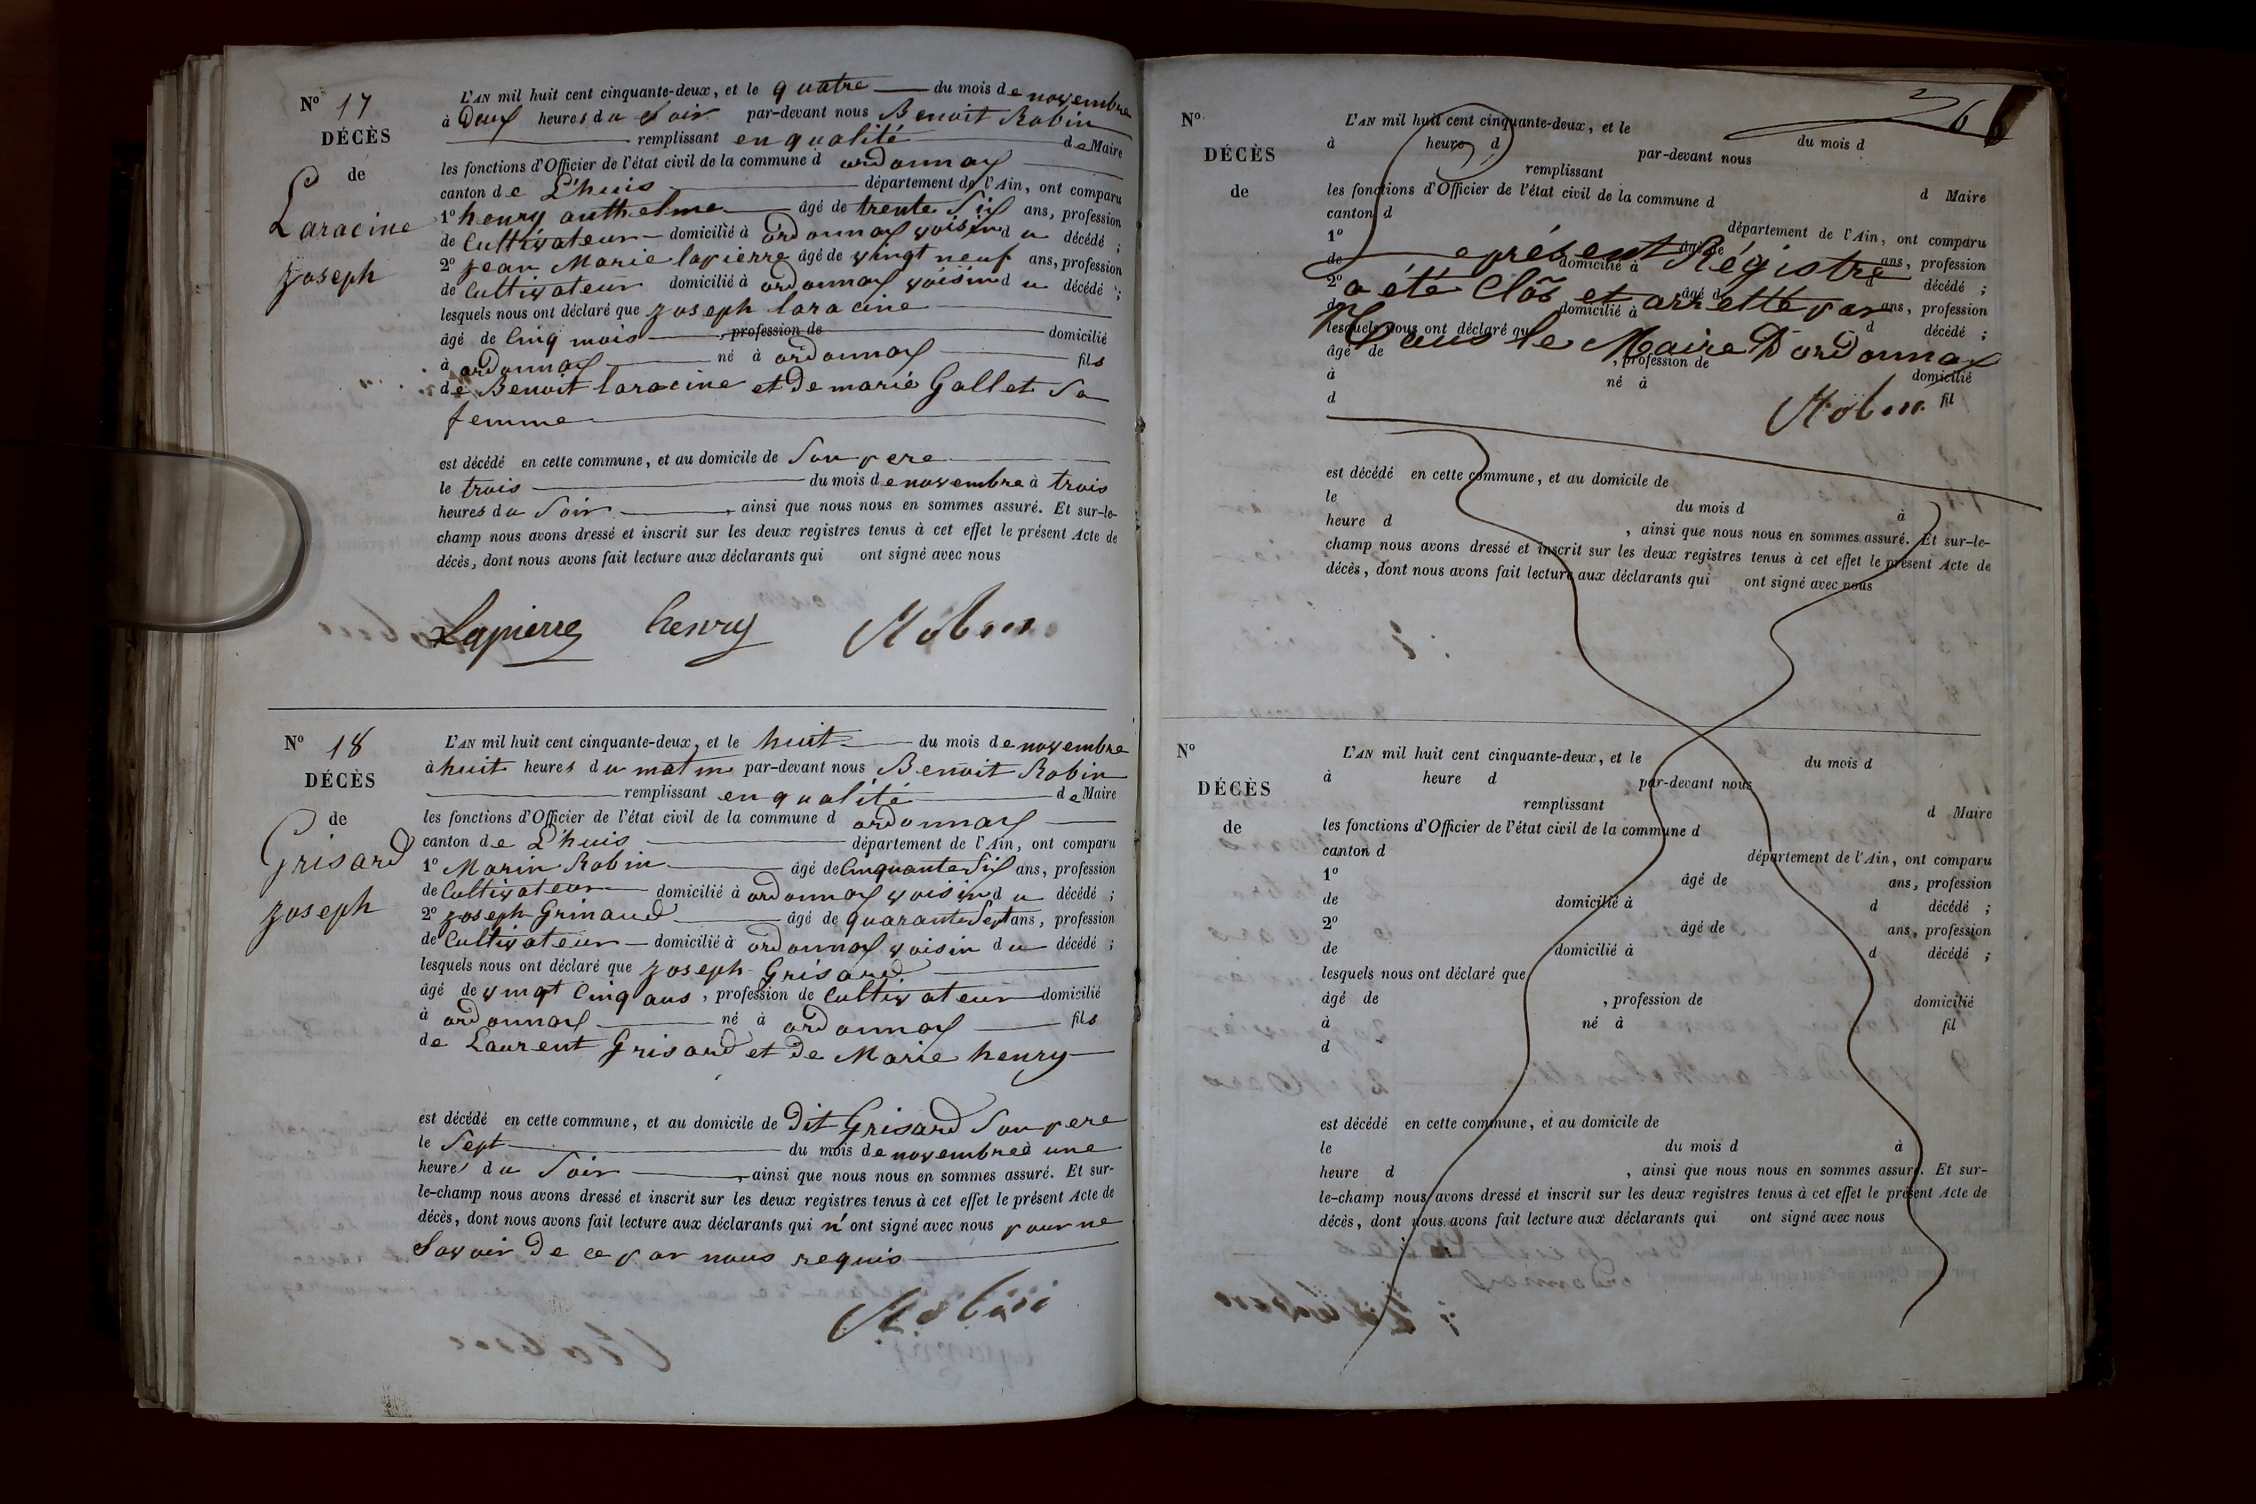 N° 17
DÉCÈS
de
Laracine
Joseph
L'AN mil huit cent cinquante-deux, et le quatre du mois de novembre
à Deux heures du Soir par-devant nous Benoit Robin
remplissant en qualité de Maire
les fonctions d'Officier de l'état civil de la commune d ordonnax
canton de L'huis département de l'Ain, ont comparu
1° henry anthelme âgé de trente Six ans, profession
de Cultivateur domicilié à ordonnax voisin du décédé ;
2° Jean Marie lapierre âgé de vingt neuf ans, profession
de Cultivateur domicilié à ordonnax voisin du décédé ;
lesquels nous ont déclaré que Joseph laracine
âgé de Cinq mois , profession de domicilié
à ordonnax né à ordonnax fils
de Benoit laracine et De marie Gallet Sa
femme
est décédé en cette commune, et au domicile de Son pere
le trois du mois de novembre à trois
heures du Soir , ainsi que nous nous en sommes assuré. Et sur-le-
champ nous avons dressé et inscrit sur les deux registres tenus à cet effet le présent Acte de
décès, dont nous avons fait lecture aux déclarants qui ont signé avec nous
Lapierre henry Robin
N° 18
DÉCÈS
de
Grisard
Joseph
L'AN mil huit cent cinquante-deux, et le huit du mois de novembre
à huit heures du matin par-devant nous Benoit Robin
remplissant en qualité de Maire
les fonctions d'Officier de l'état civil de la commune d ordonnax
canton de L'huis département de l'Ain, ont comparu
1° Marin Robin âgé de Cinquante Six ans, profession
de Cultivateur domicilié à ordonnax voisin du décédé ;
2° Joseph Grinaud âgé de quarante Sept ans, profession
de Cultivateur domicilié à ordonnax voisin du décédé ;
lesquels nous ont déclaré que Joseph Grisard
âgé de vingt Cinq ans , profession de Cultivateur domicilié
à ordonnax né à ordonnax fils
de Laurent Grisard et De Marie henry
est décédé en cette commune, et au domicile de Dit Grisard Son pere
le Sept du mois de novembre à une
heures du Soir , ainsi que nous nous en sommes assuré. Et sur-
le-champ nous avons dressé et inscrit sur les deux registres tenus à cet effet le présent Acte de
décès, dont nous avons fait lecture aux déclarants qui n' ont signé avec nous pour ne
Savoir De ce par nous requis
Robin
N°
DÉCÈS
de
L'AN mil huit cent cinquante-deux, et le du mois d
à heure d par-devant nous
remplissant d Maire
les fonctions d'Officier de l'état civil de la commune d
canton d département de l'Ain, ont comparu
1° âgé de ans, profession
de domicilié à d décédé ;
2° âgé de ans, profession
de domicilié à d décédé ;
lesquels nous ont déclaré que
âgé de , profession de domicilié
à né à fil
d
Le présent Régistre
a été Clôs et arretté par
Nous le Maire D'ordonnax
Robin
est décédé en cette commune, et au domicile de
le du mois d à
heure d , ainsi que nous nous en sommes assuré. Et sur-le-
champ nous avons dressé et inscrit sur les deux registres tenus à cet effet le présent Acte de
décès, dont nous avons fait lecture aux déclarants qui ont signé avec nous
N°
DÉCÈS
de
L'AN mil huit cent cinquante-deux, et le du mois d
à heure d par-devant nous
remplissant d Maire
les fonctions d'Officier de l'état civil de la commune d
canton d département de l'Ain, ont comparu
1° âgé de ans, profession
de domicilié à d décédé ;
2° âgé de ans, profession
de domicilié à d décédé ;
lesquels nous ont déclaré que
âgé de , profession de domicilié
à né à fil
d
est décédé en cette commune, et au domicile de
le du mois d à
heure d , ainsi que nous nous en sommes assuré. Et sur-
le-champ nous avons dressé et inscrit sur les deux registres tenus à cet effet le présent Acte de
décès, dont nous avons fait lecture aux déclarants qui ont signé avec nous